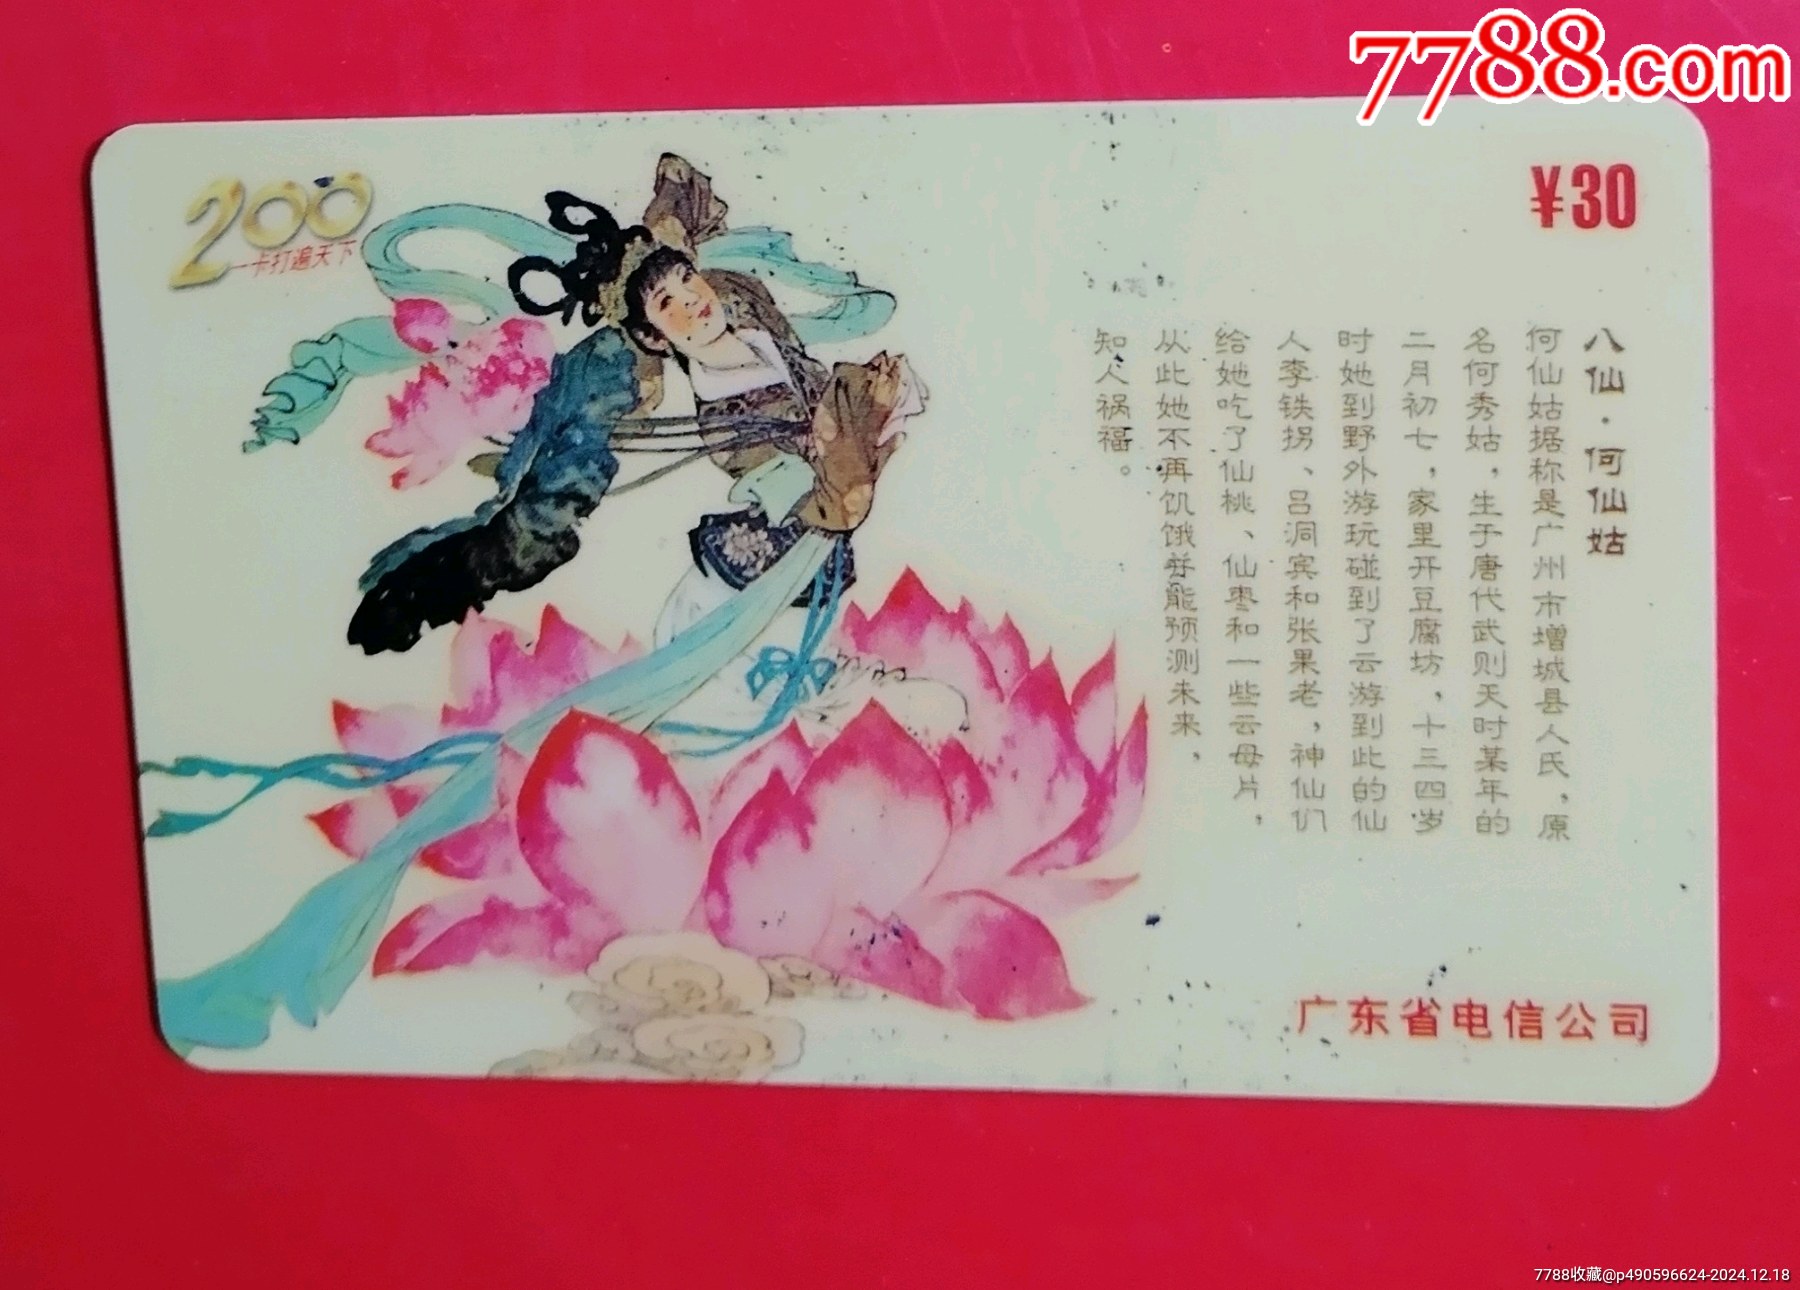 7788.com
200
一卡打遍天下
¥30
八仙·何仙姑
何仙姑据称是广州市增城县人氏，原
名何秀姑，生于唐代武则天时某年的
二月初七，家里开豆腐坊，十三四岁
时她到野外游玩碰到了云游到此的仙
人李铁拐、吕洞宾和张果老，神仙们
给她吃了仙桃、仙枣和一些云母片，
从此她不再饥饿并能预测未来，
知人祸福。
广东省电信公司
7788收藏@p490596624-2024.12.18